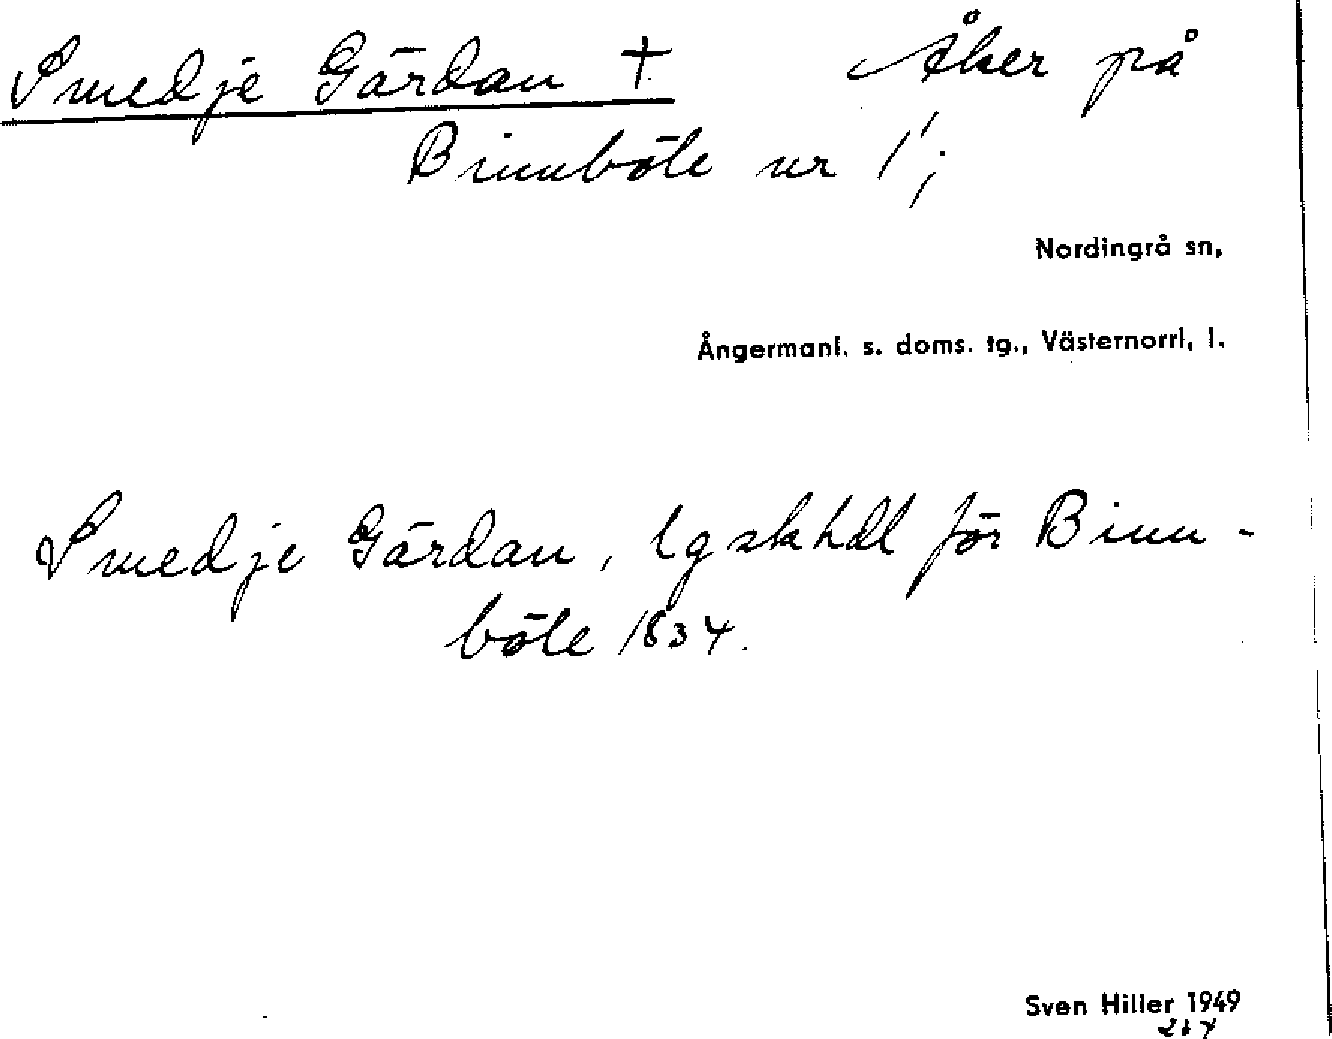 Smedje Gärdan † Åker på
Binnböle nr 1¹;
Nordingrå sn,
Ångermanl. s. doms. tg., Västernorrl, l.
Smedje Gärdan, lgskhdl för Binn-
böle 1834.
Sven Hiller 1949